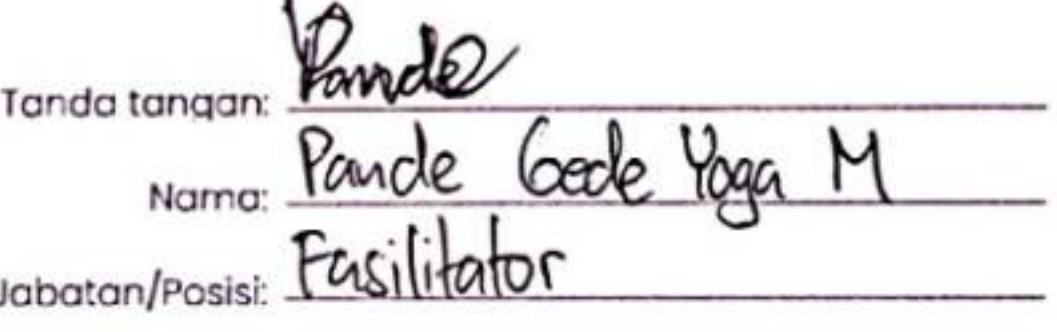 Tanda tangan: Pande
Nama: Pande Gede Yoga M
Jabatan/Posisi: Fasilitator